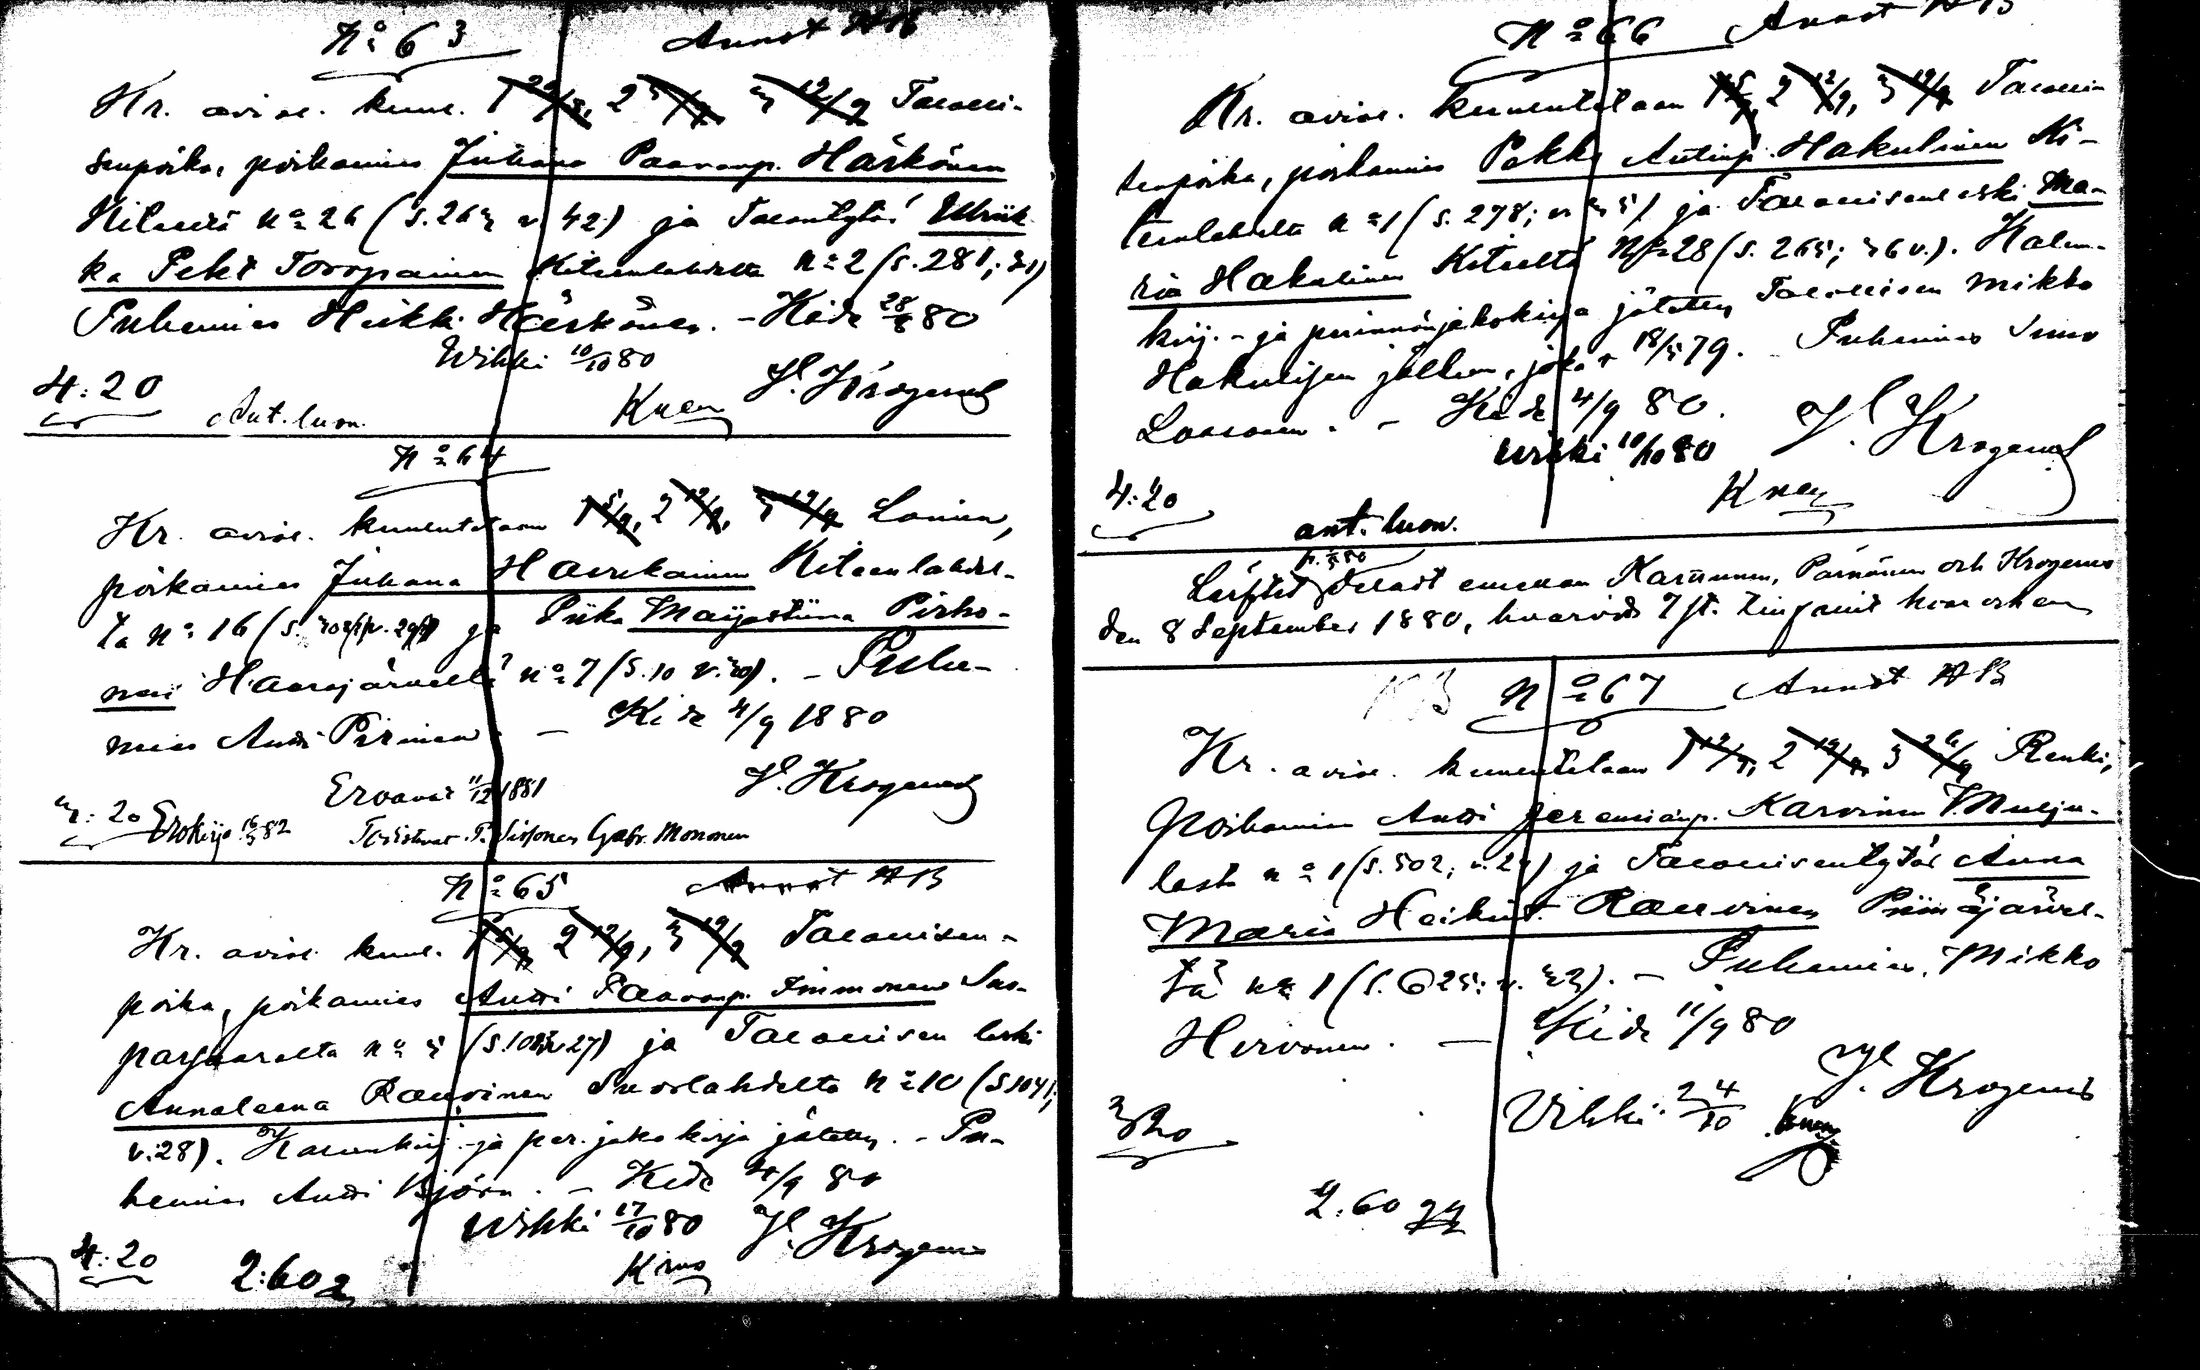 N:o 63 Annot
Hr. avios. kuul. 1 29/8, 2 5/9, 3 12/9 Talolli-
senpoika, poikamies Juhana Paavonp. Härkönen
Kiteeltä n:o 26 (s. 263 v. 42) ja Talontytär Ulriik-
ka Pekt. Toropainen Kiteenlahdelta n:o 2 (s. 281; 31)
Puhemies Heikki Härkönen. – Kide 28/8 80
Wihki 10/10 80
4:20 Ant. luon. J. Krogerus
N:o 64
Hr. avios. kuulutetaan 1 5/9, 2 12/9, 3 19/9 Loinen,
poikamies Juhana Haurkainen Kiteenlahdel-
ta n:o 16 ja Piika Maijastiina Pirho-
nen Haarajärveltä n:o 7 (s. 10 v. 30). – Puhe-
mies Antti Pirinen. – Kide 4/9 1880
Eroavat 11/12 1881 J. Krogerus
3:20 Erokirja 82
Todistavat P. Sissonen Gabr. Mononen
N:o 65
Hr. avios. kuul. 1 5/9, 2 12/9, 3 19/9 Talollisen-
poika, poikamies Antti Paavonp. Immonen Suo-
parsaaralta n:o 5 v. 27) ja Talollisen leski
Annaleena Rauvinen Suorlahdelta n:o 10 (s 104;
v. 28). Kalunkirj. ja per. jakokirja jätetty. – Pu-
hemies Antti Björn. – Kide 4/9 80
Wihki 17/10 80 J. Krogerus
4:20 2:60
N:o 66 Annot
Hr. avios. kuulutetaan 1 5/9, 2 12/9, 3 19/9 Talollis-
senpoika, poikamies Pekka Antinp. Hakulinen Ki-
teenlahdelta n:o 1 (s. 278; v. 35) ja Talollisenleski Ma-
ria Hakulinen Kiteeltä N:o 28 (s. 265; 36 v.). Kalun-
kirj.- ja perinnönjakokirja jätetty Talollisen Mikko
Hakulisen jälkeen, 18/5 79. Puhemies Simo
Laasonen. – Kide 4/9 80.
Wihki 10/10 80 J. Krogerus
4:20
ant. luon.
Lyftet emellan Karinen, Parnänen och Krogerus
den 8 September 1880, hvarvid 7 st. hvar och en
N:o 67 Annot
Hr. avios. kuulutetaan 1 12/9, 2 19/9, 3 26/9 Renki,
Poikamies Antti Jeremianp. Karvinen V. Mulju-
lasta n:o 1 (s. 502; v. 29) ja Talollisentytär Anna
Maria Heikint. Rauvinen Piimäjärvel-
tä n:o 1 (s. 625; v. 33). – Puhemies, Mikko
Hirvonen. – Kide 11/9 80
J. Krogerus
Vihki 24/10
3 20
2.60